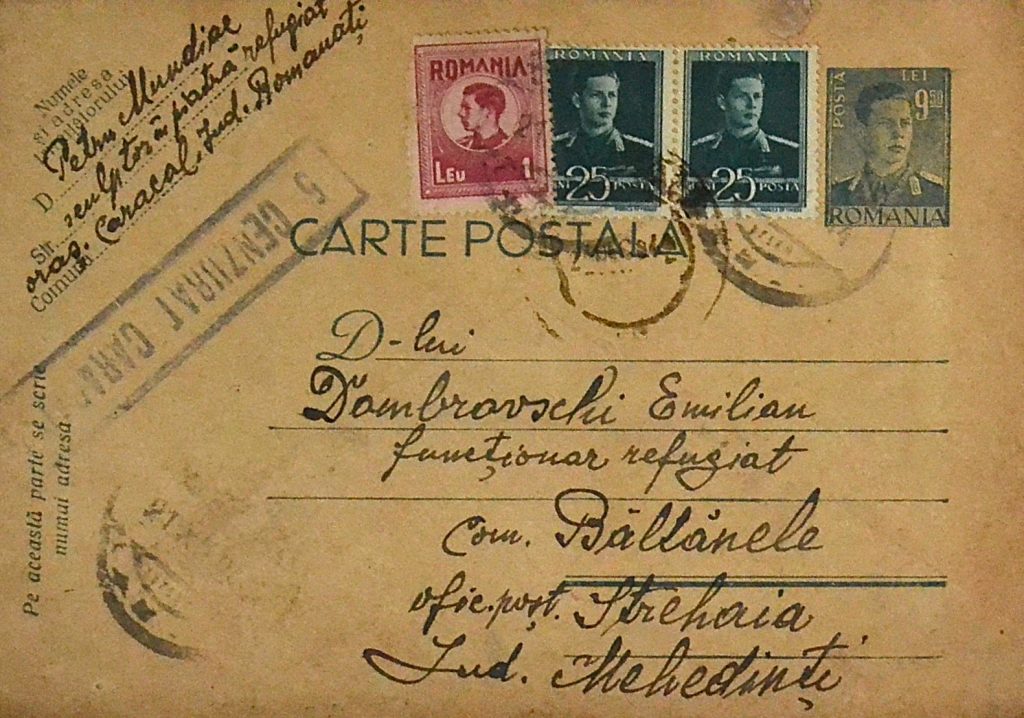 Numele
și adresa
D. Petru Mundiac
sculptor în piatră refugiat
Str.
oraș. Caracal, Jud. Romanați
Comuna
5 CENZURAT CARA
Pe această parte se scrie
numai adresa
ROMANIA
LEU 1
ROMANIA
25 POSTA
ROMANIA
LEI 25 POSTA
POSTA LEI
9.50
ROMANIA
CARTE POSTALA
D-lui
Dombrovschi Emilian
funcționar refugiat
com. Băltănele
ofic. poșt. Strehaia
Jud. Mehedinți